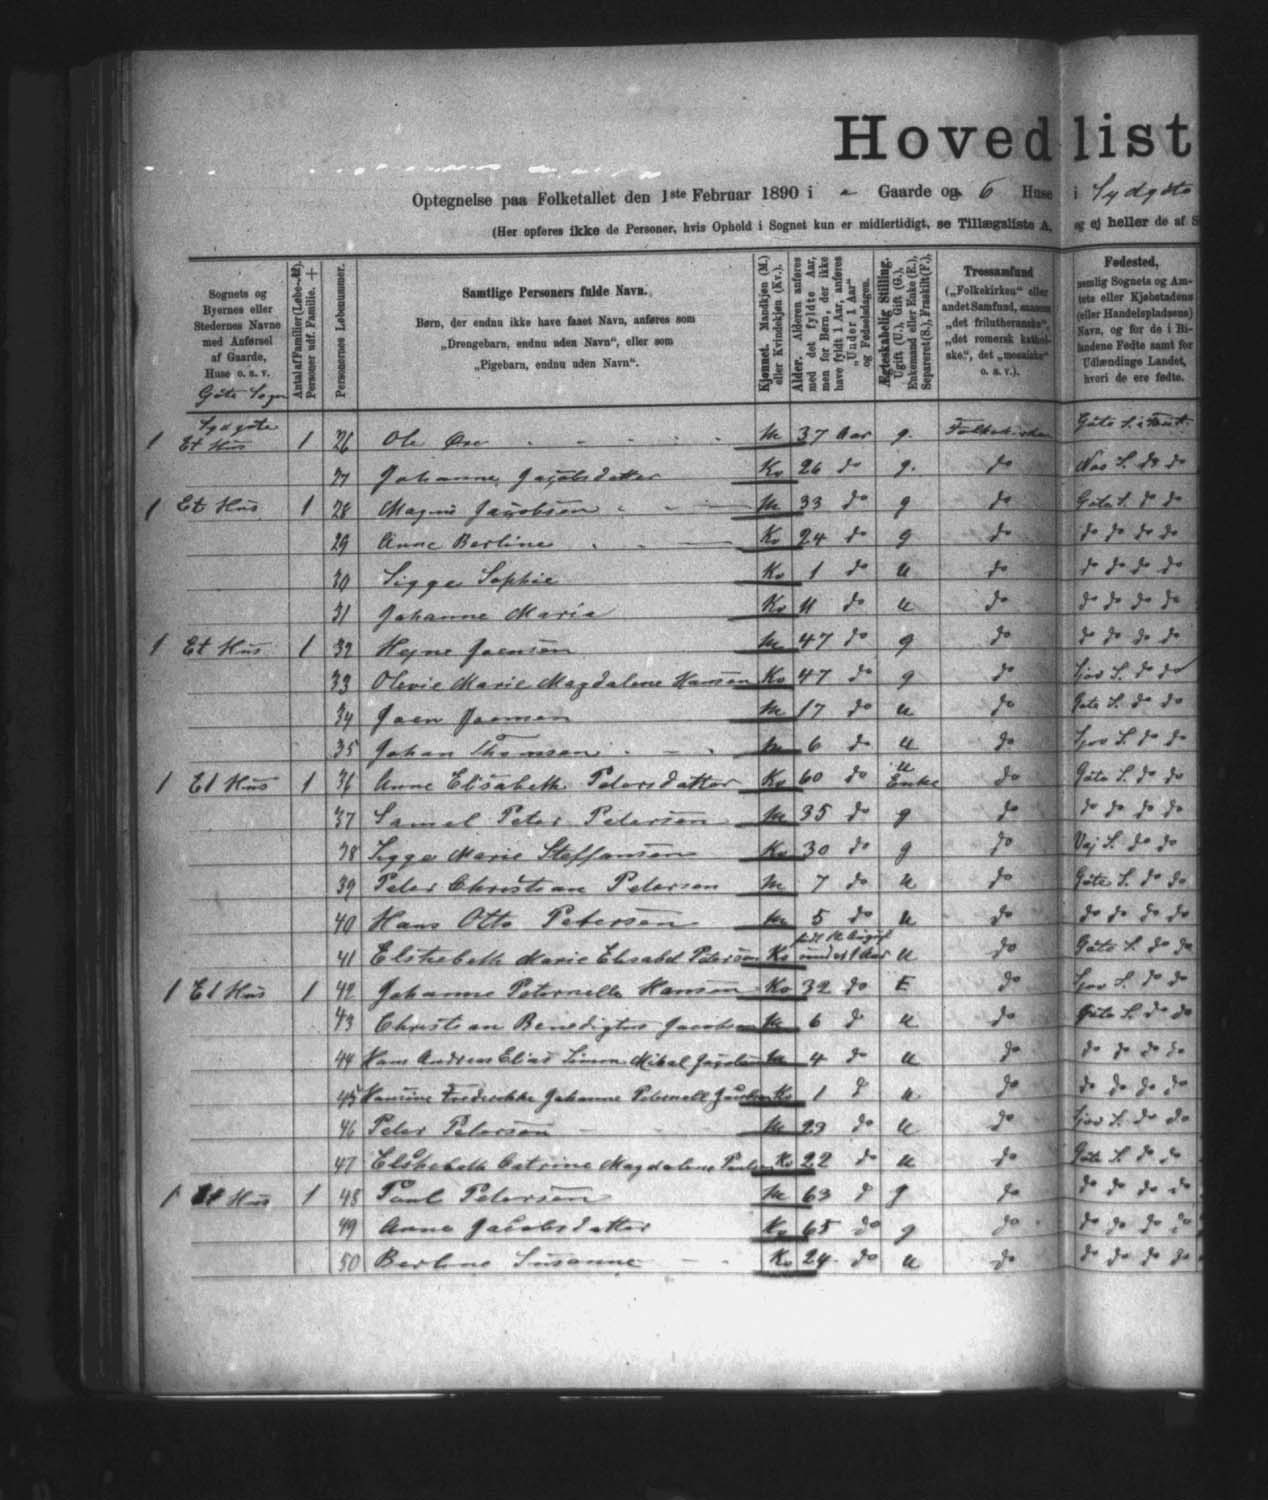 Hovedlist
Optegnelse paa Folketallet den 1ste Februar 1890 i - Gaarde og 6 Huse i Sydgöte
(Her opføres ikke de Personer, hvis Ophold i Sognet kun er midlertidigt, se Tillægsliste A, og ej heller de af S
Sognets og Byernes eller Stedernes Navne med Anførsel af Gaarde, Huse o. s. v.
Göte Sogn
Antal af Familier (Løbe-№). Personer udf. Familie. +
Personernes Løbenummer.
Samtlige Personers fulde Navn.
Børn, der endnu ikke have faaet Navn, anføres som
„Drengebarn, endnu uden Navn“, eller som
„Pigebarn, endnu uden Navn“.
Kjønnet. Mandkjøn (M.) eller Kvindekjøn (Kv.).
Alder. Alderen anføres med det fyldte Aar, men for Børn, der ikke have fyldt 1 Aar, anføres „Under 1 Aar“ og Fødselsdagen.
Ægteskabelig Stilling. Ugift (U.), Gift (G.), Enkemand eller Enke (E.), Separeret (S.), Fraskilt (F.).
Trossamfund („Folkekirken“ eller andet Samfund, saasom „det frilutheranske“, „det romersk katholske“, det „mosaiske“ o. s. v.).
Fødested, nemlig Sognets og Amtets eller Kjøbstadens (eller Handelspladsens) Navn, og for de i Bilandene Fødte samt for Udlændinge Landet, hvori de ere fødte.
Sydgöte
1 Et Hus 1 26 Ole M 37 Aar g. Folkekirken Göte S.
27 Johanne Jacobsdatter Kv 26 do g. do Nes S. do do
1 Et Hus 1 28 Magnus Jacobsen M 33 do g do Göte S. do do
29 Anne Berline Kv 24 do g do do do do do
30 Sigga Sophie Kv 1 do u do do do do do
31 Johanne Maria Kv do u do do do do do
1 Et Hus 1 32 Joensen M 47 do g do do do do do
33 Olevie Marie Magdalene Hansen Kv 47 do g do Sjov S. do do
34 Joen Joensen M 17 do u do Göte S. do do
35 Johan Thomsen M 6 do u do Sjov S. do do
1 Et Hus 1 36 Anne Elisabeth Petersdatter Kv 60 do u Enke do Göte S. do do
37 Samel Peter Petersen M 35 do g do do do do do
38 Sigga Marie Steffansen Kv 30 do g do Vej S. do do
39 Peter Christian Petersen M 7 do u do Göte S. do do
40 Hans Otto Petersen M 5 do u do do do do do
41 Elsebeth Marie Elisabet Petersen Kv under 1 Aar u do Göte S. do do
1 Et Hus 1 42 Johanne Peternelle Hansen Kv 32 do E do Sjov S. do do
43 Christian Benedigtus Jacobsen M 6 d u do Göte S. do do
44 Hans Andreas Elias Simon Mikal Jacobsen M 4 do u do do do do do
45 Hansine Frederikke Johanne Peternell Jacobsen Kv 1 d u do do do do do
46 Peter Petersen M 29 do u do Sjov S. do do
47 Elsebeth Catrine Magdalene Kv 22 do u do Göte S. do do
1 Et Hus 1 48 Poul Petersen M 63 d g do do do do do
49 Anna Jacobsdatter Kv 65 do g do do do do do
50 Berline Susanne Kv 24 do u do do do do do